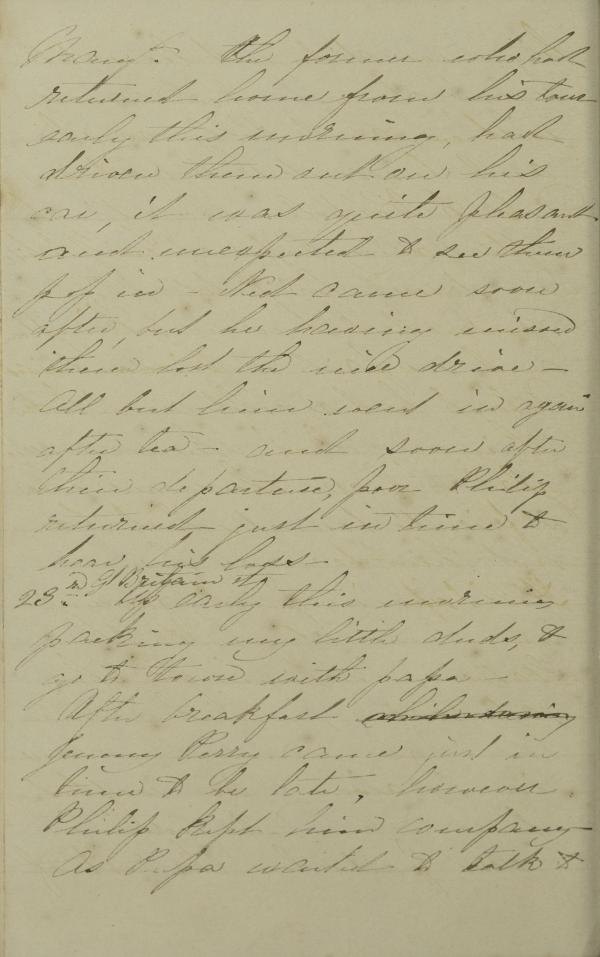 Grant. The former who had
returned home from his tour
early this morning, had
driven them out on his
car, it was quite pleasant
and unexpected to see them
pop in - Ned came soon
after, but he having missed
them lost the nice drive -
All but him went in again
after tea - and soon after
their departure, poor Philip
returned just in time to
hear his loss -
23rd Gt Britain st
Up early this morning
packing my little duds, to
go to town with papa -
After breakfast
Jemmy Perry came just in
time to be late, however
Philip kept him company
As Papa wanted to talk to